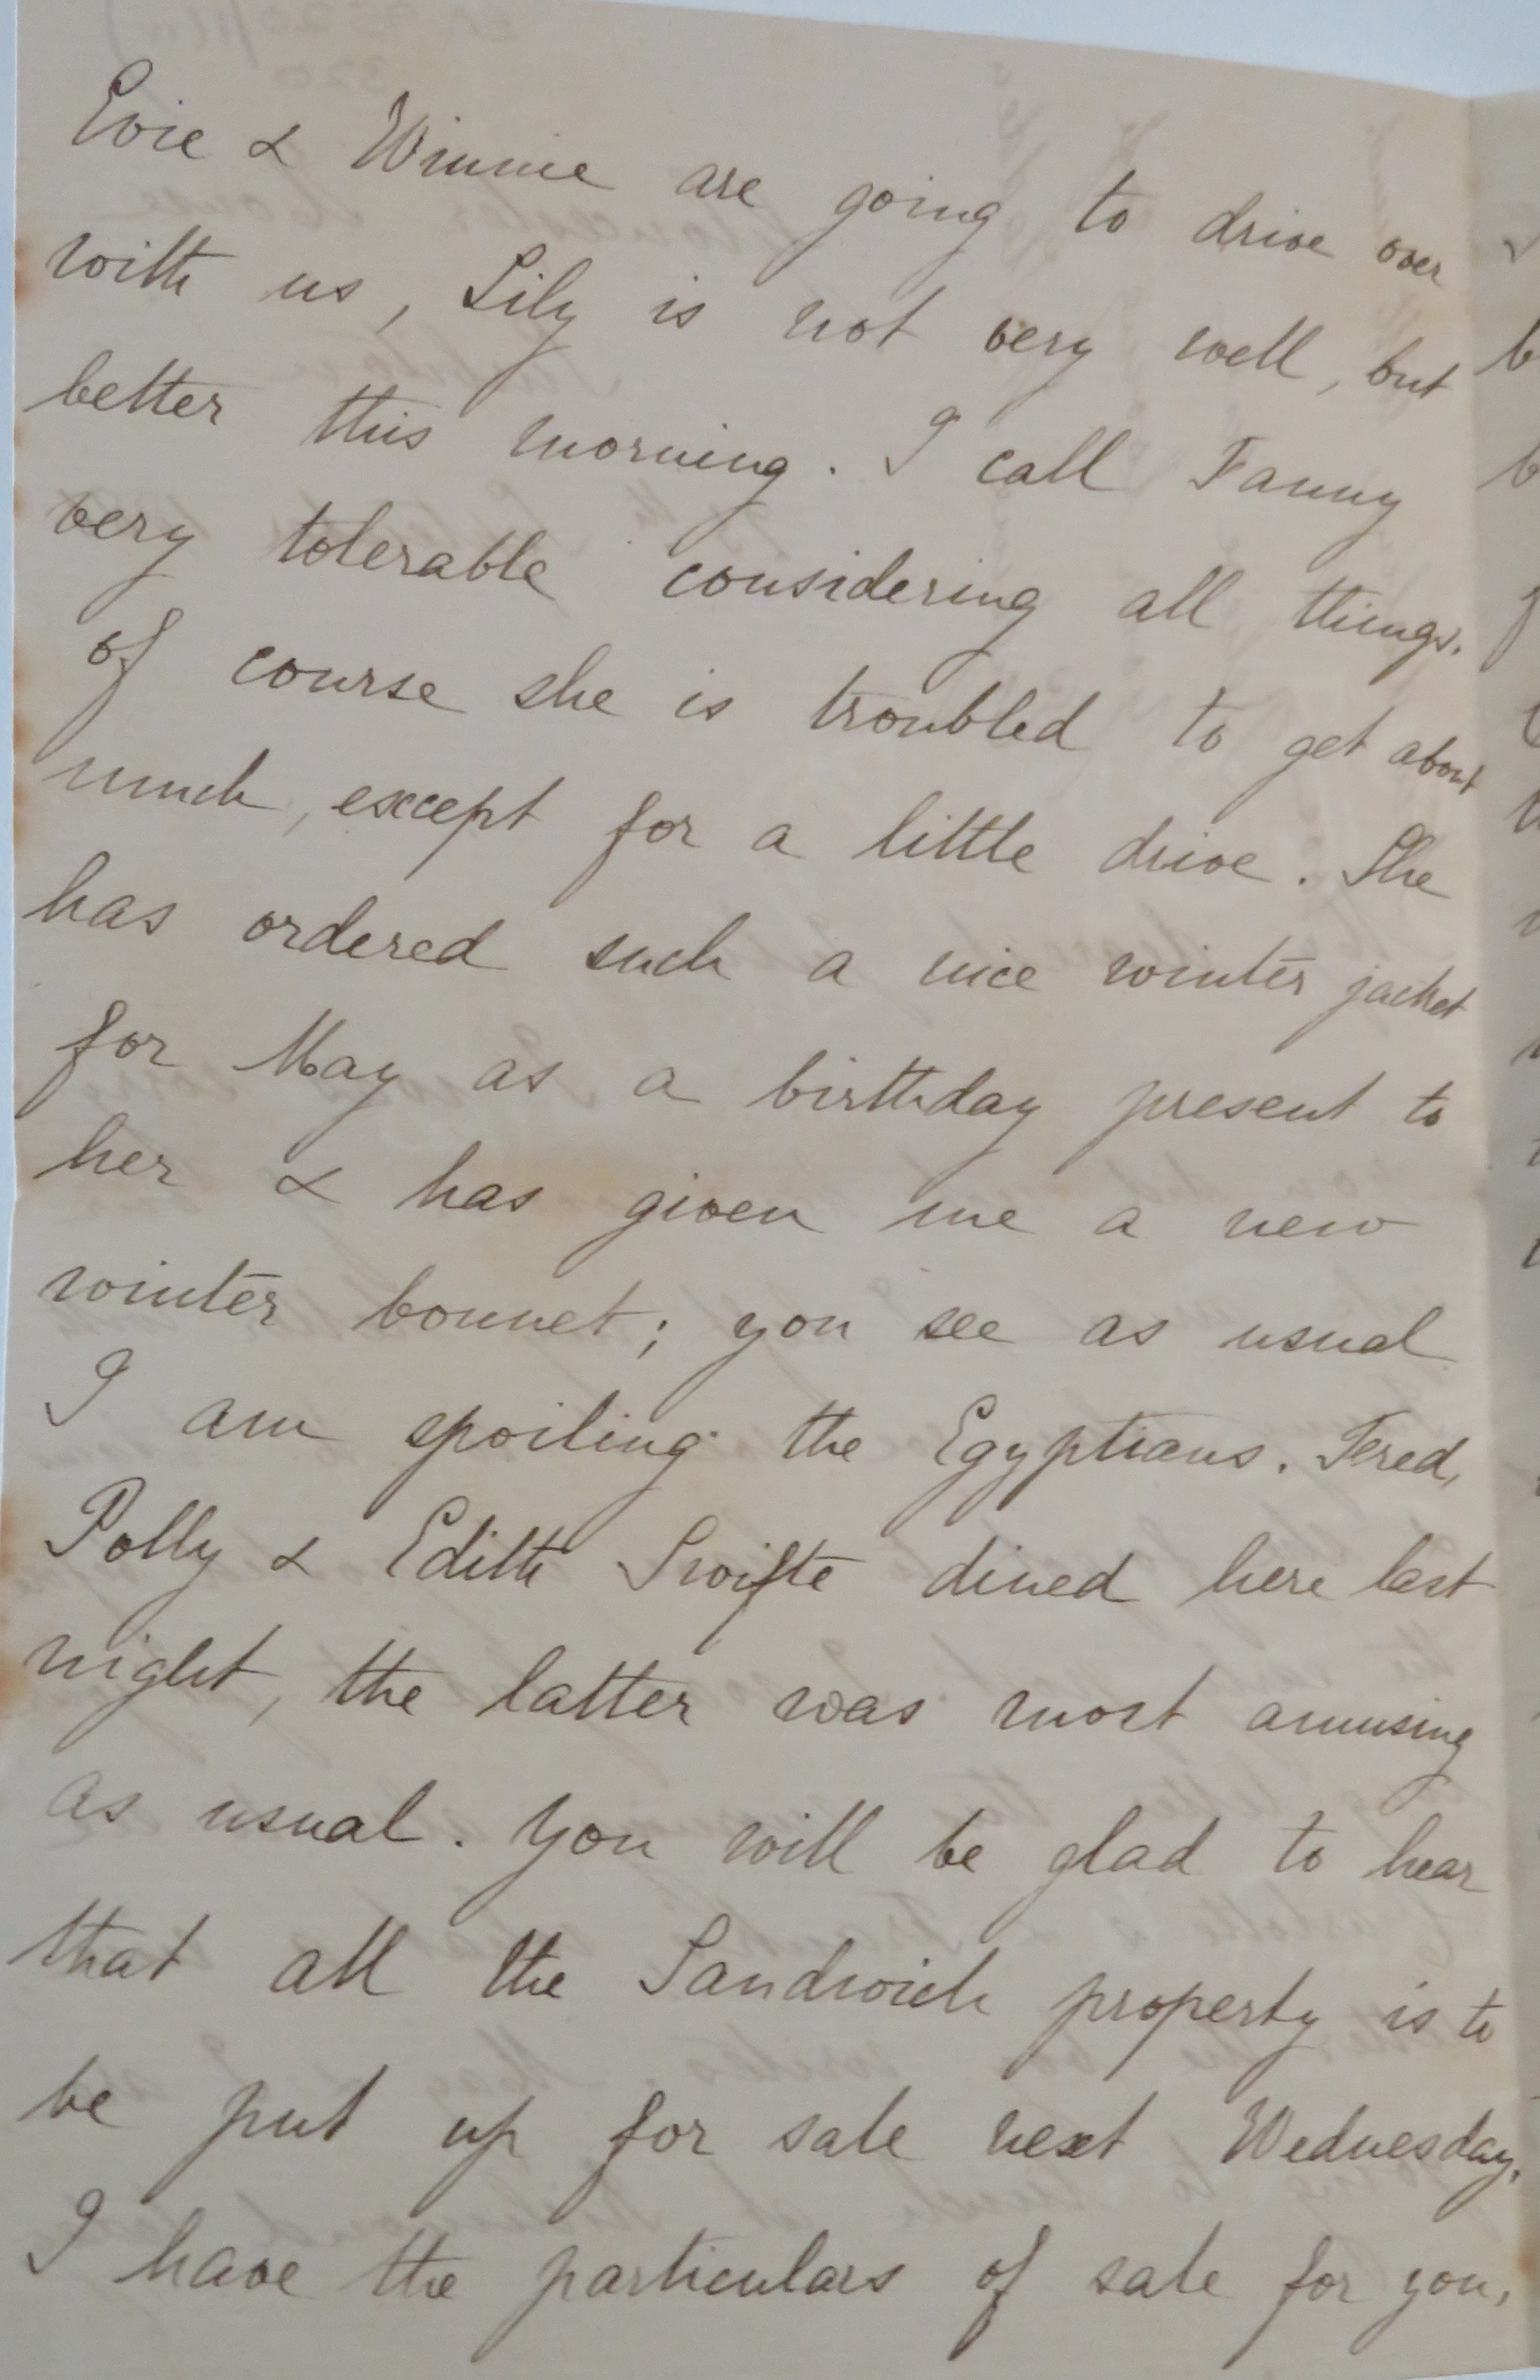 Evie & Winnie are going to drive over
with us, Lily is not very well, but
better this morning. I call Fanny
very tolerable considering all things.
of course she is troubled to get about
much, except for a little drive. She
has ordered such a nice winter jacket
for May as a birthday present to
her & has given me a new
winter bonnet; you see as usual
I am spoiling the Egyptians. Fred,
Polly & Edith Swifte dined here last
night, the latter was most amusing
as usual. You will be glad to hear
that all the Sandwich property is to
be put up for sale next Wednesday,
I have the particulars of sale for you,